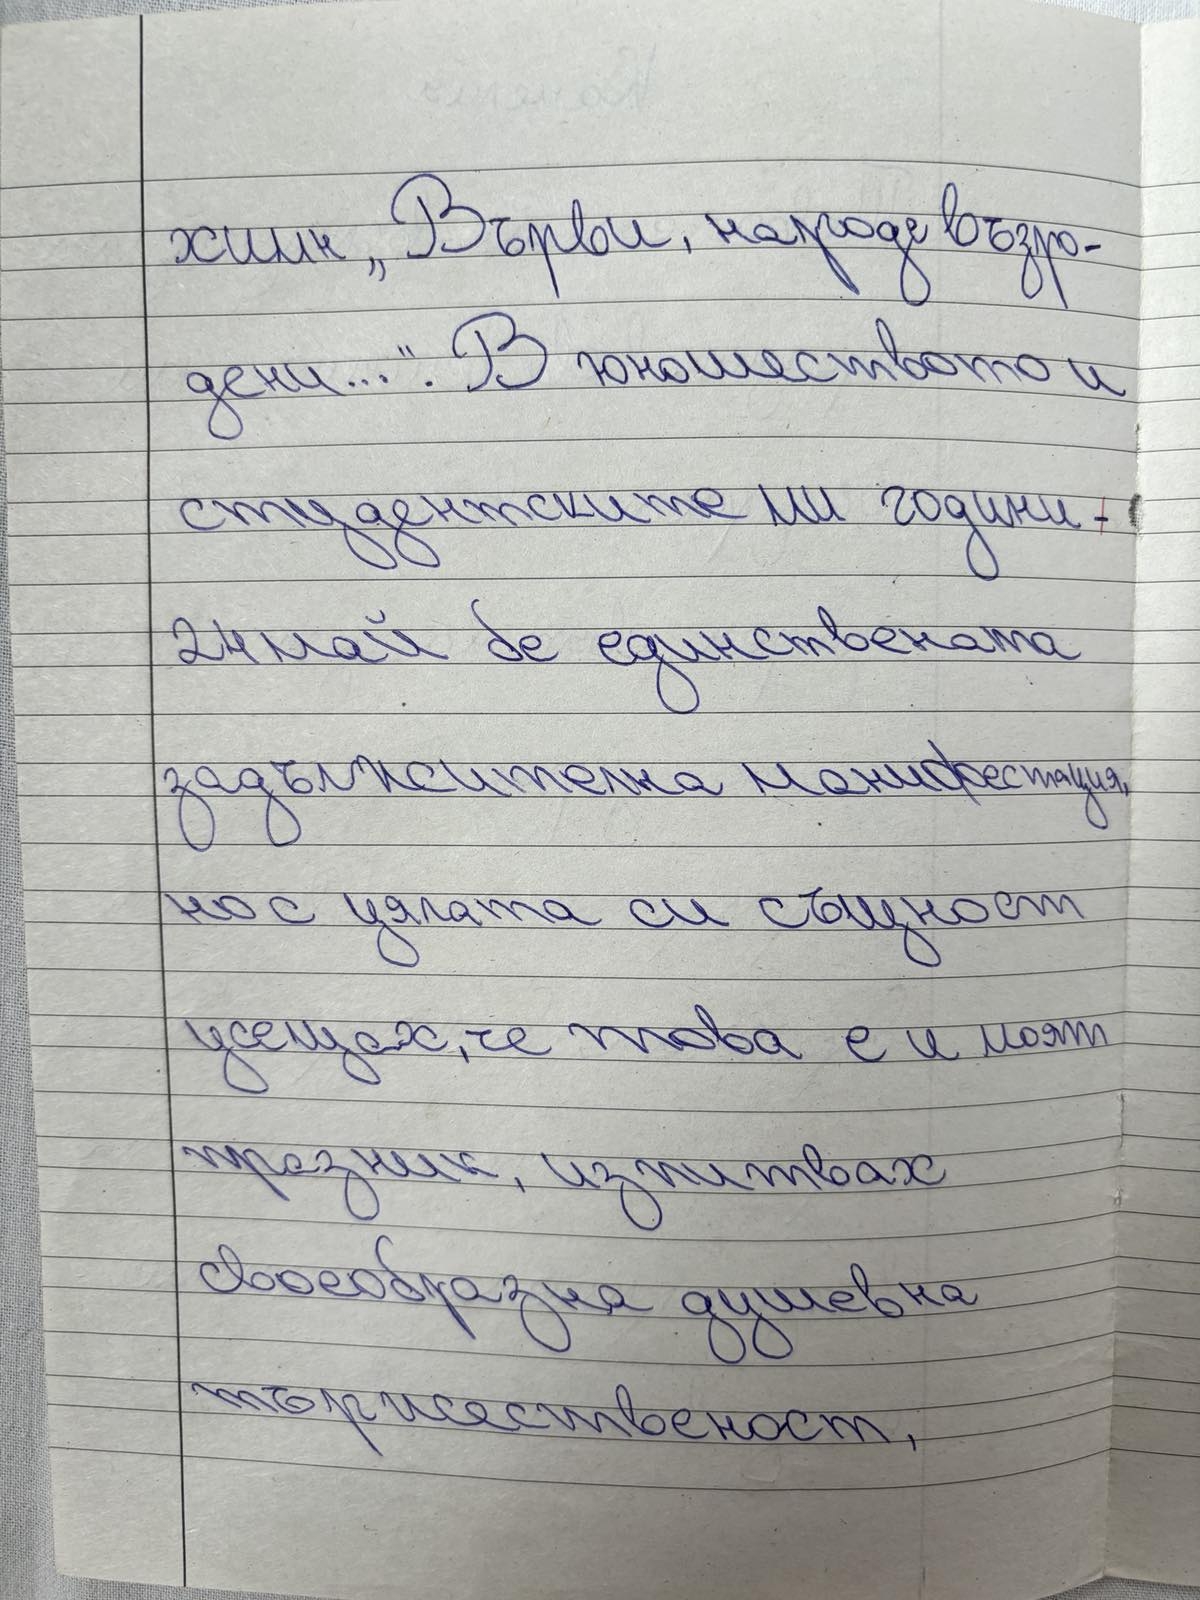 химн „Върви, народе възро-
дени...". В юношеството и
студентските ми години -
24 май бе единствената
задължителна манифестация,
но с цялата си същност
усещах, че това е и моят
празник, изпитвах
своеобразна душевна
тържественост,